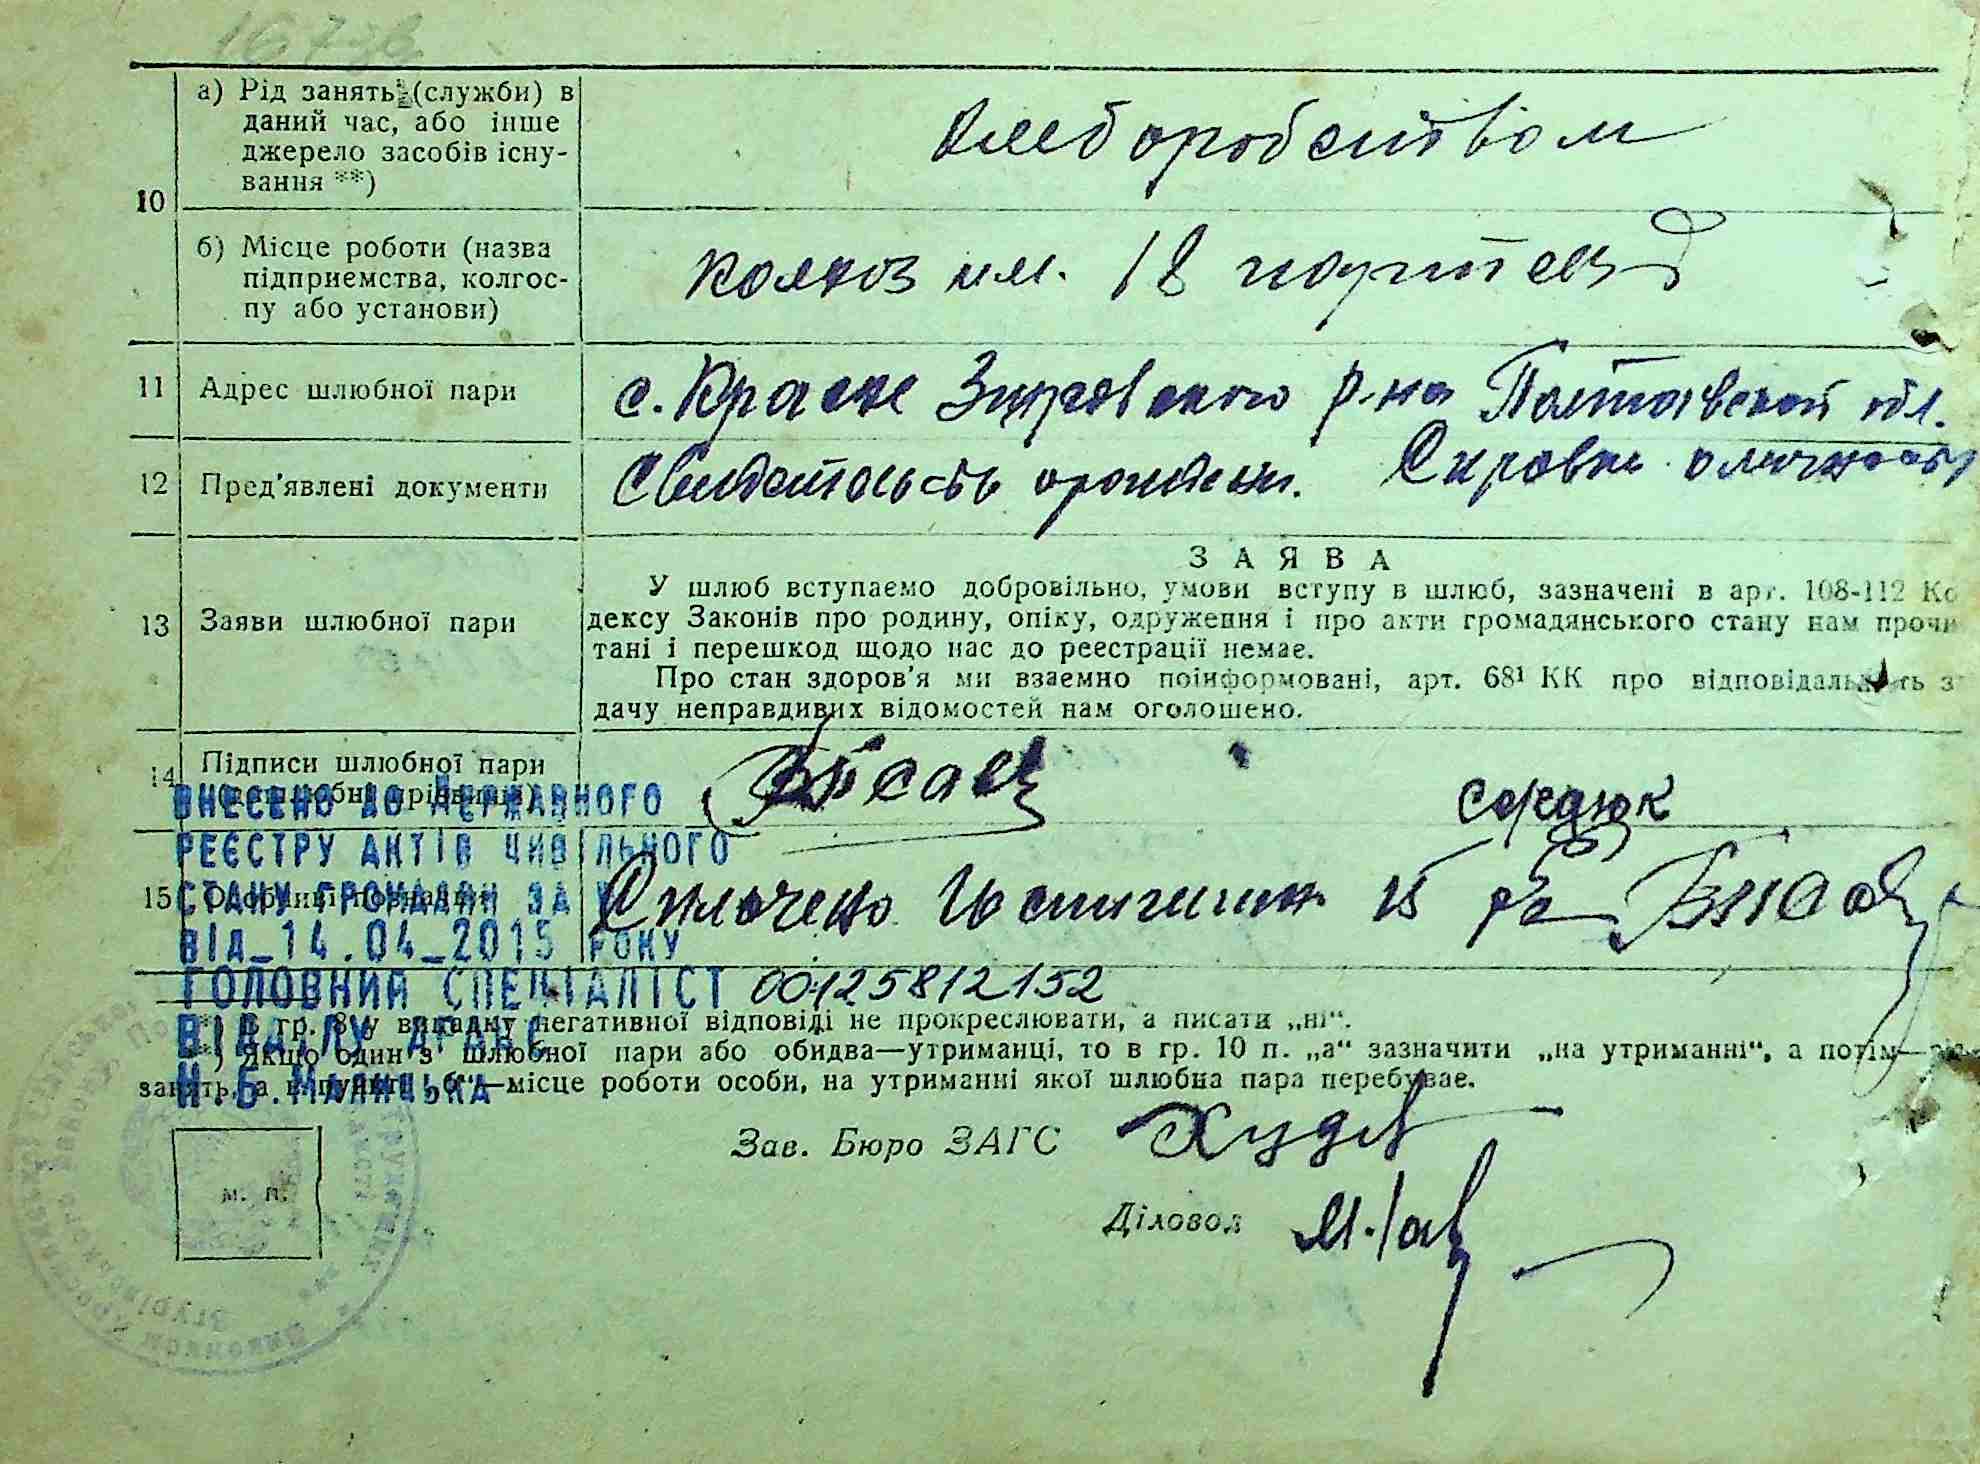 167 зв
10
а) Рід занять (служби) в
даний час, або інше
джерело засобів існу-
вання **)
хлеборобством
б) Місце роботи (назва
підприємства, колгос-
пу або установи)
колхоз им. 18 партсезд
11 Адрес шлюбної пари
с. Красне Згуровского р-на Полтавской обл.
12 Пред'явлені документи
13 Заяви шлюбної пари
ЗАЯВА
У шлюб вступаємо добровільно, умови вступу в шлюб, зазначені в арт. 108-112 Ко
дексу Законів про родину, опіку, одруження і про акти громадянського стану нам прочи
тані і перешкод щодо нас до реєстрації немає.
Про стан здоров'я ми взаємно поінформовані, арт. 68¹ КК про відповідальність з
дачу неправдивих відомостей нам оголошено.
14 Підписи шлюбної пари
Сердюк
15
Сплочено 15 р
ВНЕСЕНО ДО ДЕРЖАВНОГО
РЕЄСТРУ АКТІВ ЦИВІЛЬНОГО
СТАНУ ГРОМАДЯН ЗА №
ВІД_14.04_2015 РОКУ
ГОЛОВНИЙ СПЕЦІАЛІСТ 00125812152
ВІДДІЛУ ДРАЦС
Н.Б.МАЛИЦЬКА
*) В гр. 8 у випадку негативної відповіді не прокреслювати, а писати „ні“.
**) Якщо один з шлюбної пари або обидва—утриманці, то в гр. 10 п. „а“ зазначити „на утриманні“, а потім—рід
занять, а в пункті „б“—місце роботи особи, на утриманні якої шлюбна пара перебуває.
Зав. Бюро ЗАГС
Діловод
м. п.